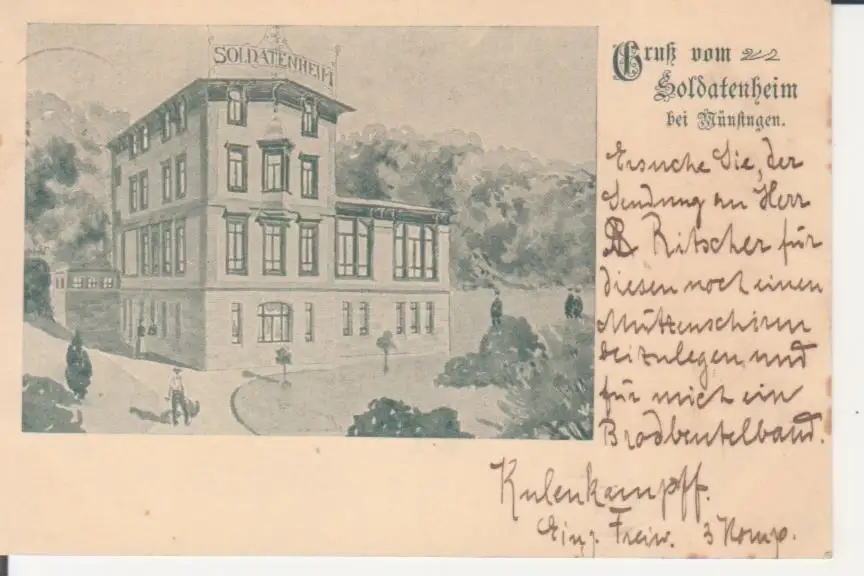 SOLDATENHEIM
Gruß vom
Soldatenheim
bei Münsingen.
Ersuche Sie, der
Sendung an Herr
Ritscher für
diesen noch einen
Mützenschirm
beizulegen und
für mich ein
Brodbeutelband.
Kulenkampff.
Einj. Freiw. 3 Komp.